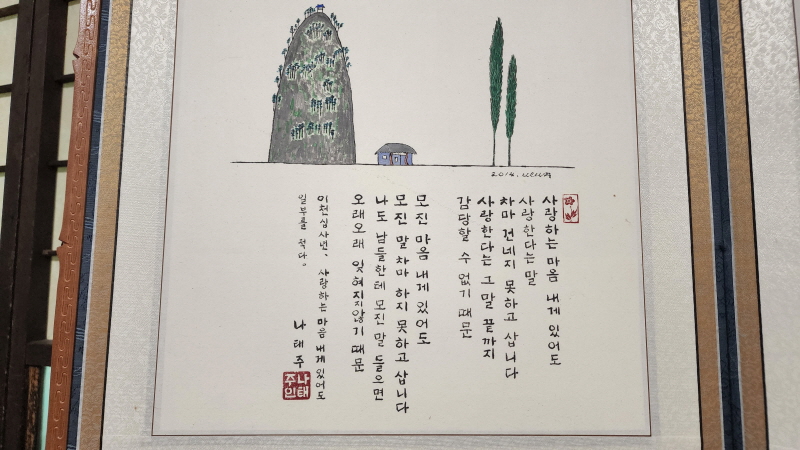 2014. 나태주
사랑하는 마음 내게 있어도
사랑한다는 말
차마 건네지 못하고 삽니다
사랑한다는 그 말 끝까지
감당할 수 없기 때문
모진 마음 내게 있어도
모진 말 차마 하지 못하고 삽니다
나도 남들한테 모진 말 들으면
오래오래 잊혀지지 않기 때문
이천십사년, 사랑하는 마음 내게 있어도
일부를 적다.
나태주
나태
주인